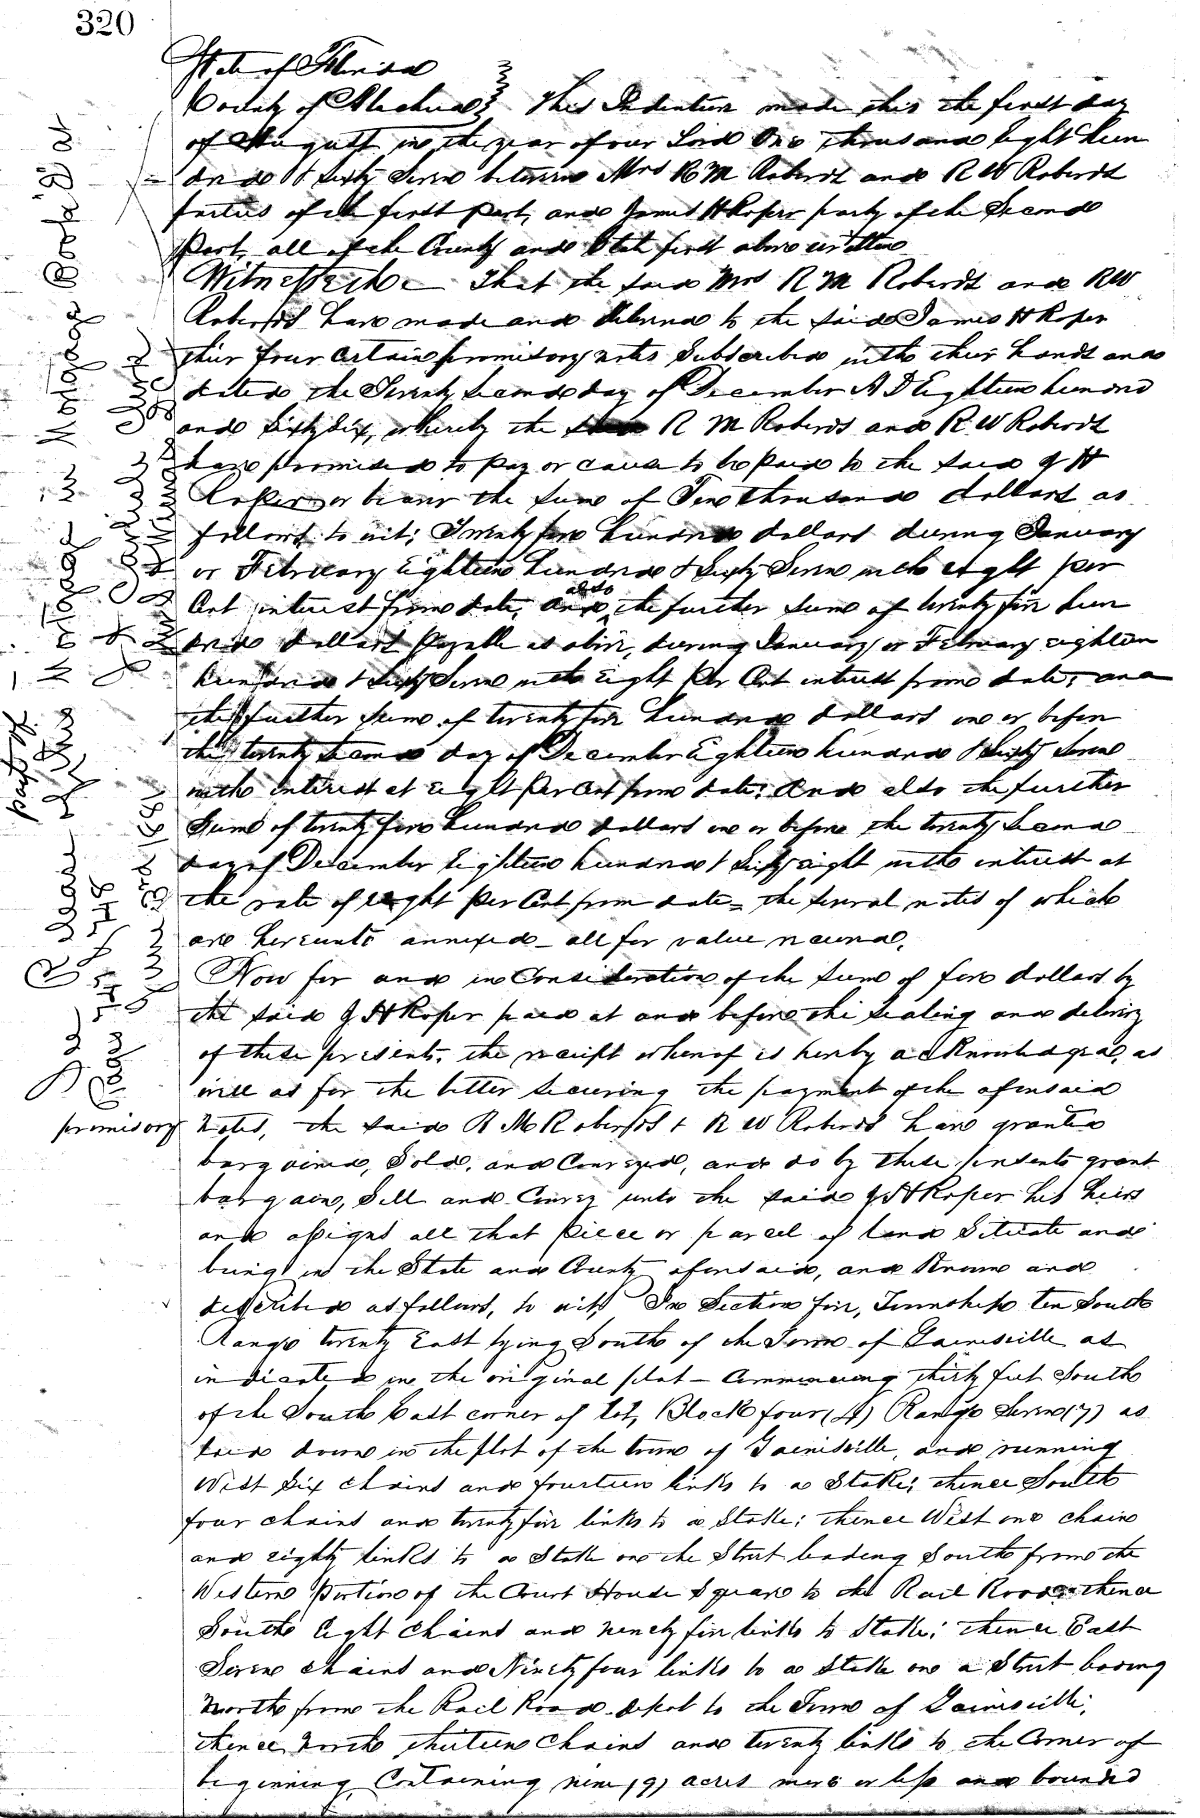 320
State of Florida
County of Alachua } This Indenture made this the first day
of August in the year of our Lord One thousand Eight hun
dred & Sixty Seven between Mrs R M Roberds and R W Roberds
parties of the first part, and James H Roper party of the Second
part, all of the County and State first above written
Witnesseth - That the said Mrs R M Roberds and R W
Roberds have made and delivered to the said James H Roper
their four certain promisory notes Subscribed with their hands and
dated the Twenty Second day of December A D Eighteen hundred
and Sixty Six, whereby the R M Roberds and R W Roberds
have promised to pay or cause to be paid to the said J H
Roper or bearer the sum of Ten thousand dollars as
follows to wit; Twenty five hundred dollars during January
or February Eighteen hundred & Sixty Seven with eight per
Cent interest from date, and also the further sum of twenty five hun
dred dollars payable as above, during January or February eighteen
hundred & Sixty Seven with Eight Per Cent interest from date; and
the further sum of twenty five hundred dollars on or before
the twenty second day of December Eighteen hundred & Sixty Seven
with interest at eight per cent from date; And also the further
Sum of twenty five hundred dollars on or before the twenty second
day of December Eighteen hundred & Sixty eight with interest at
the rate of eight per Cent from date - the several notes of which
are hereunto annexed - all for value received.
Now for and in Consideration of the sum of five dollars by
the said J H Roper paid at and before the sealing and delivery
of these presents, the receipt whereof is hereby acknowledged, as
well as for the better securing the payment of the aforesaid
promisory notes, the said R M Roberds & R W Roberds have granted
bargained, Sold, and Conveyed, and do by these presents grant
bargain, Sell and Convey unto the said J H Roper his heirs
and assigns all that piece or parcel of land Situate and
being in the State and County aforesaid, and Known and
described as follows, to wit, In Section five, Township ten South
Range twenty East lying South of the Town of Gainisville as
indicated in the original plat - Commencing thirty feet South
of the South East corner of lot, Block four (4) Range Seven (7) as
laid down in the plot of the town of Gainisville, and running
West Six chains and fourteen links to a Stake; thence South
four chains and twenty five links to a Stake; thence West one chain
and eighty links to a Stake on the Street leading South from the
Western portion of the Court House Square to the Rail Road; thence
South Eight Chains and ninety five links to Stake; thence East
Seven chains and Ninety four links to a Stake on a Street boring
North from the Rail Road depot to the Town of Gainisville;
thence North thirteen Chains and twenty links to the Corner of
beginning, Containing nine (9) acres more or less and bounded
See Release part of this Mortgage in Mortgage Book "2" at
Page